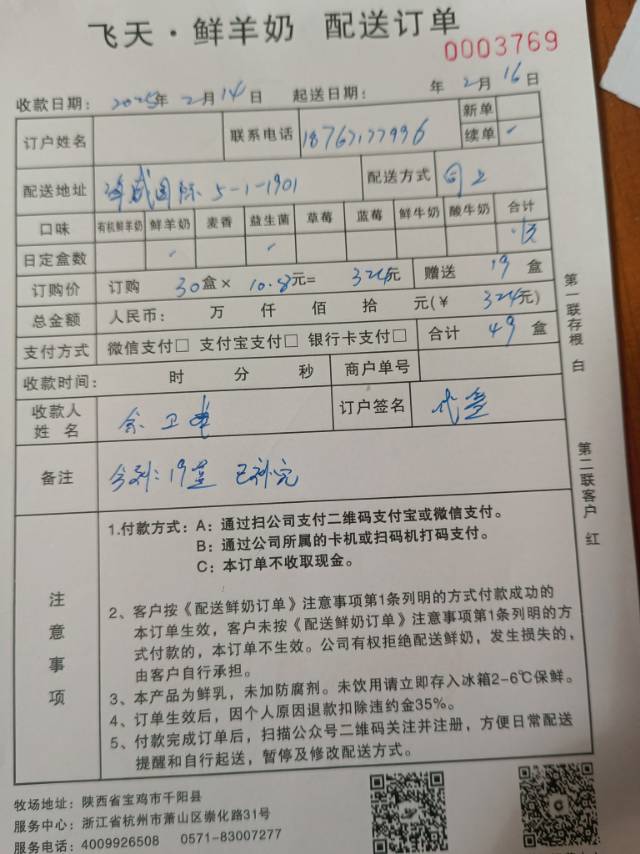 飞天·鲜羊奶 配送订单
0003769
收款日期： 2025年 2月 14日 起送日期： 年 2月 16日
订户姓名 联系电话 新单
续单 ✓
配送地址 国际 5-1-1901 配送方式 同上
口味 有机鲜羊奶 鲜羊奶 麦香 益生菌 草莓 蓝莓 鲜牛奶 酸牛奶 合计
日定盒数 ✓ ✓
订购价 订购 30盒× 10.8元= 324元 赠送 19 盒
总金额 人民币： 万 仟 佰 拾 元(￥ 324元)
支付方式 微信支付□ 支付宝支付□ 银行卡支付□ 合计 49 盒
收款时间： 时 分 秒 商户单号
收款人
姓 名 余卫 订户签名 代
备注 19盒 已补完
第一联存根 白
第二联客户 红
注意事项
1.付款方式：A：通过扫公司支付二维码支付宝或微信支付。
B：通过公司所属的卡机或扫码机打码支付。
C：本订单不收取现金。
2、客户按《配送鲜奶订单》注意事项第1条列明的方式付款成功的
本订单生效，客户未按《配送鲜奶订单》注意事项第1条列明的方
式付款的，本订单不生效。公司有权拒绝配送鲜奶，发生损失的，
由客户自行承担。
3、本产品为鲜乳，未加防腐剂。未饮用请立即存入冰箱2-6℃保鲜。
4、订单生效后，因个人原因退款扣除违约金35%。
5、付款完成订单后，扫描公众号二维码关注并注册，方便日常配送
提醒和自行起送，暂停及修改配送方式。
牧场地址：陕西省宝鸡市千阳县
服务中心：浙江省杭州市萧山区崇化路31号
服务电话：4009926508 0571-83007277